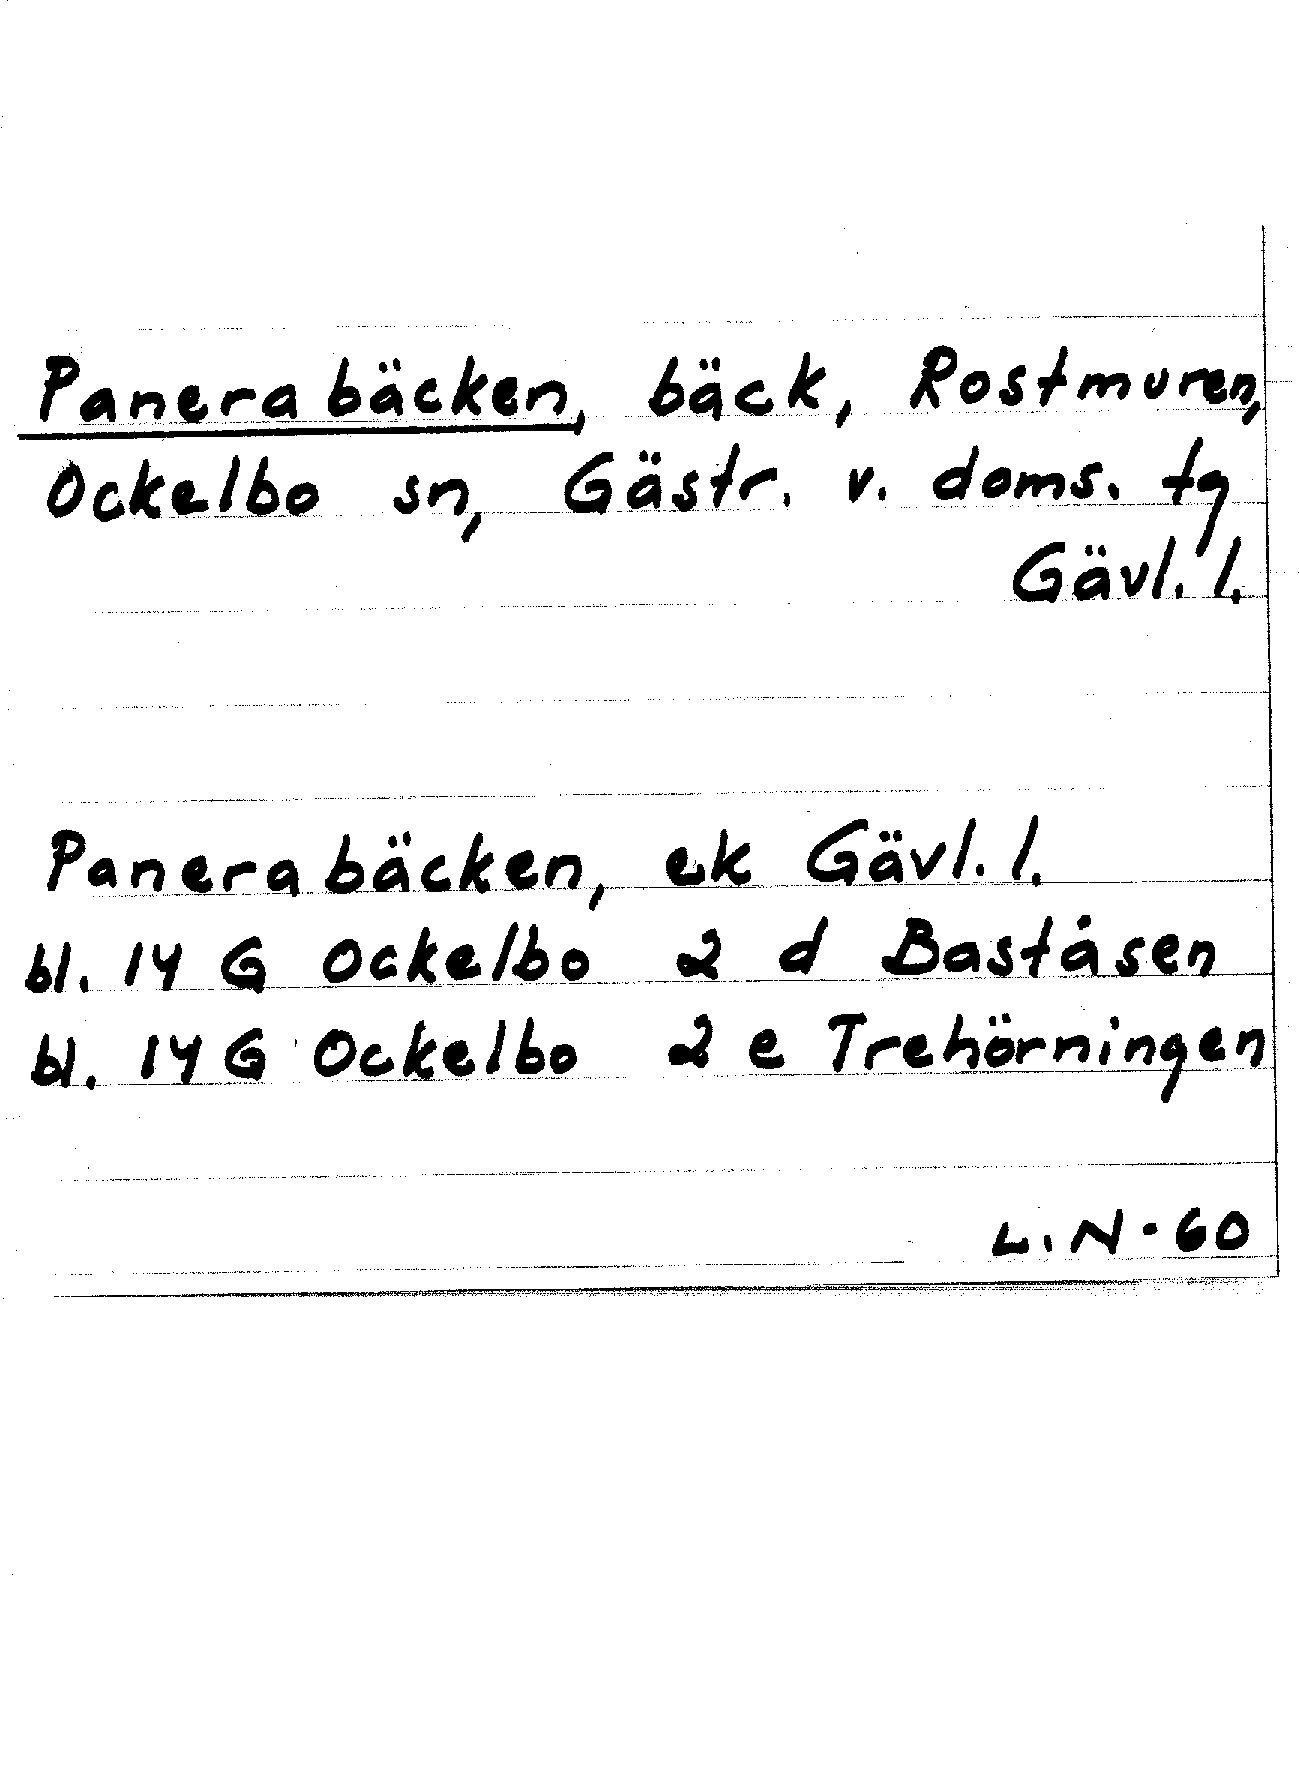 Panerabäcken, bäck, Rostmuren,
Ockelbo sn, Gästr. v. doms. tg
Gävl. l.
Panerabäcken, ek Gävl. l.
bl. 14 G Ockelbo 2 d Baståsen
bl. 14 G Ockelbo 2 e Trehörningen
L. N - 60